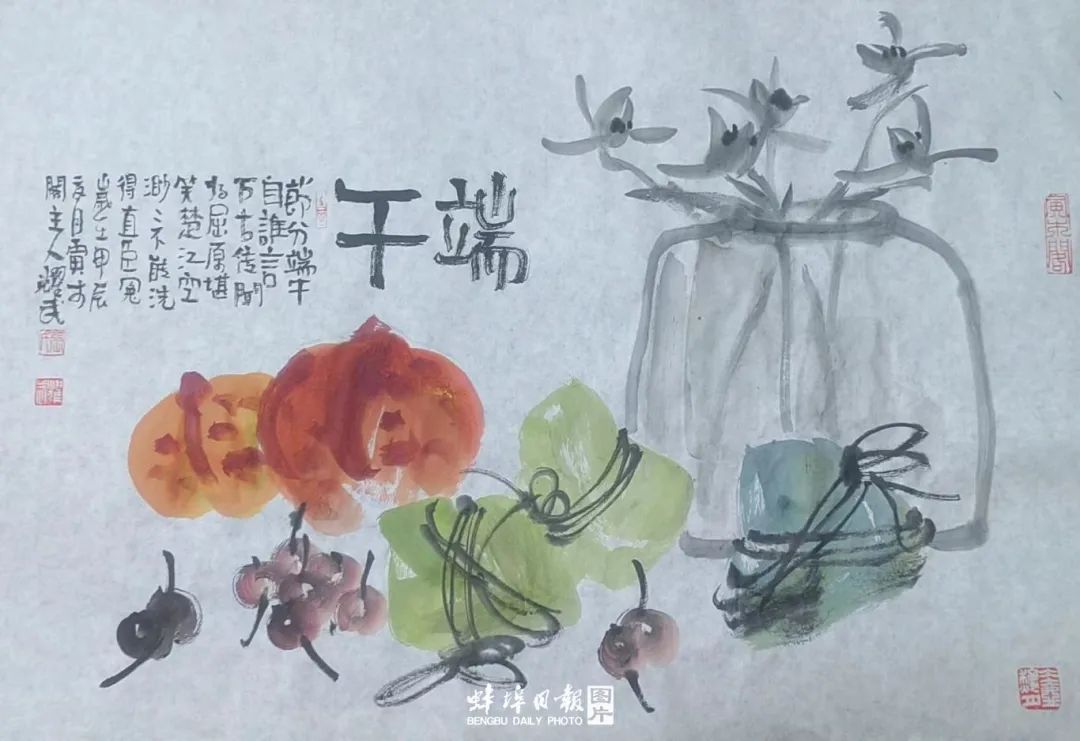 端午
節分端午
自誰言
万古傳聞
為屈原堪
笑楚江空
渺々不能洗
得直臣冤
歲在甲辰
月
閣主人耀民
蚌埠日報 图片
BENGBU DAILY PHOTO